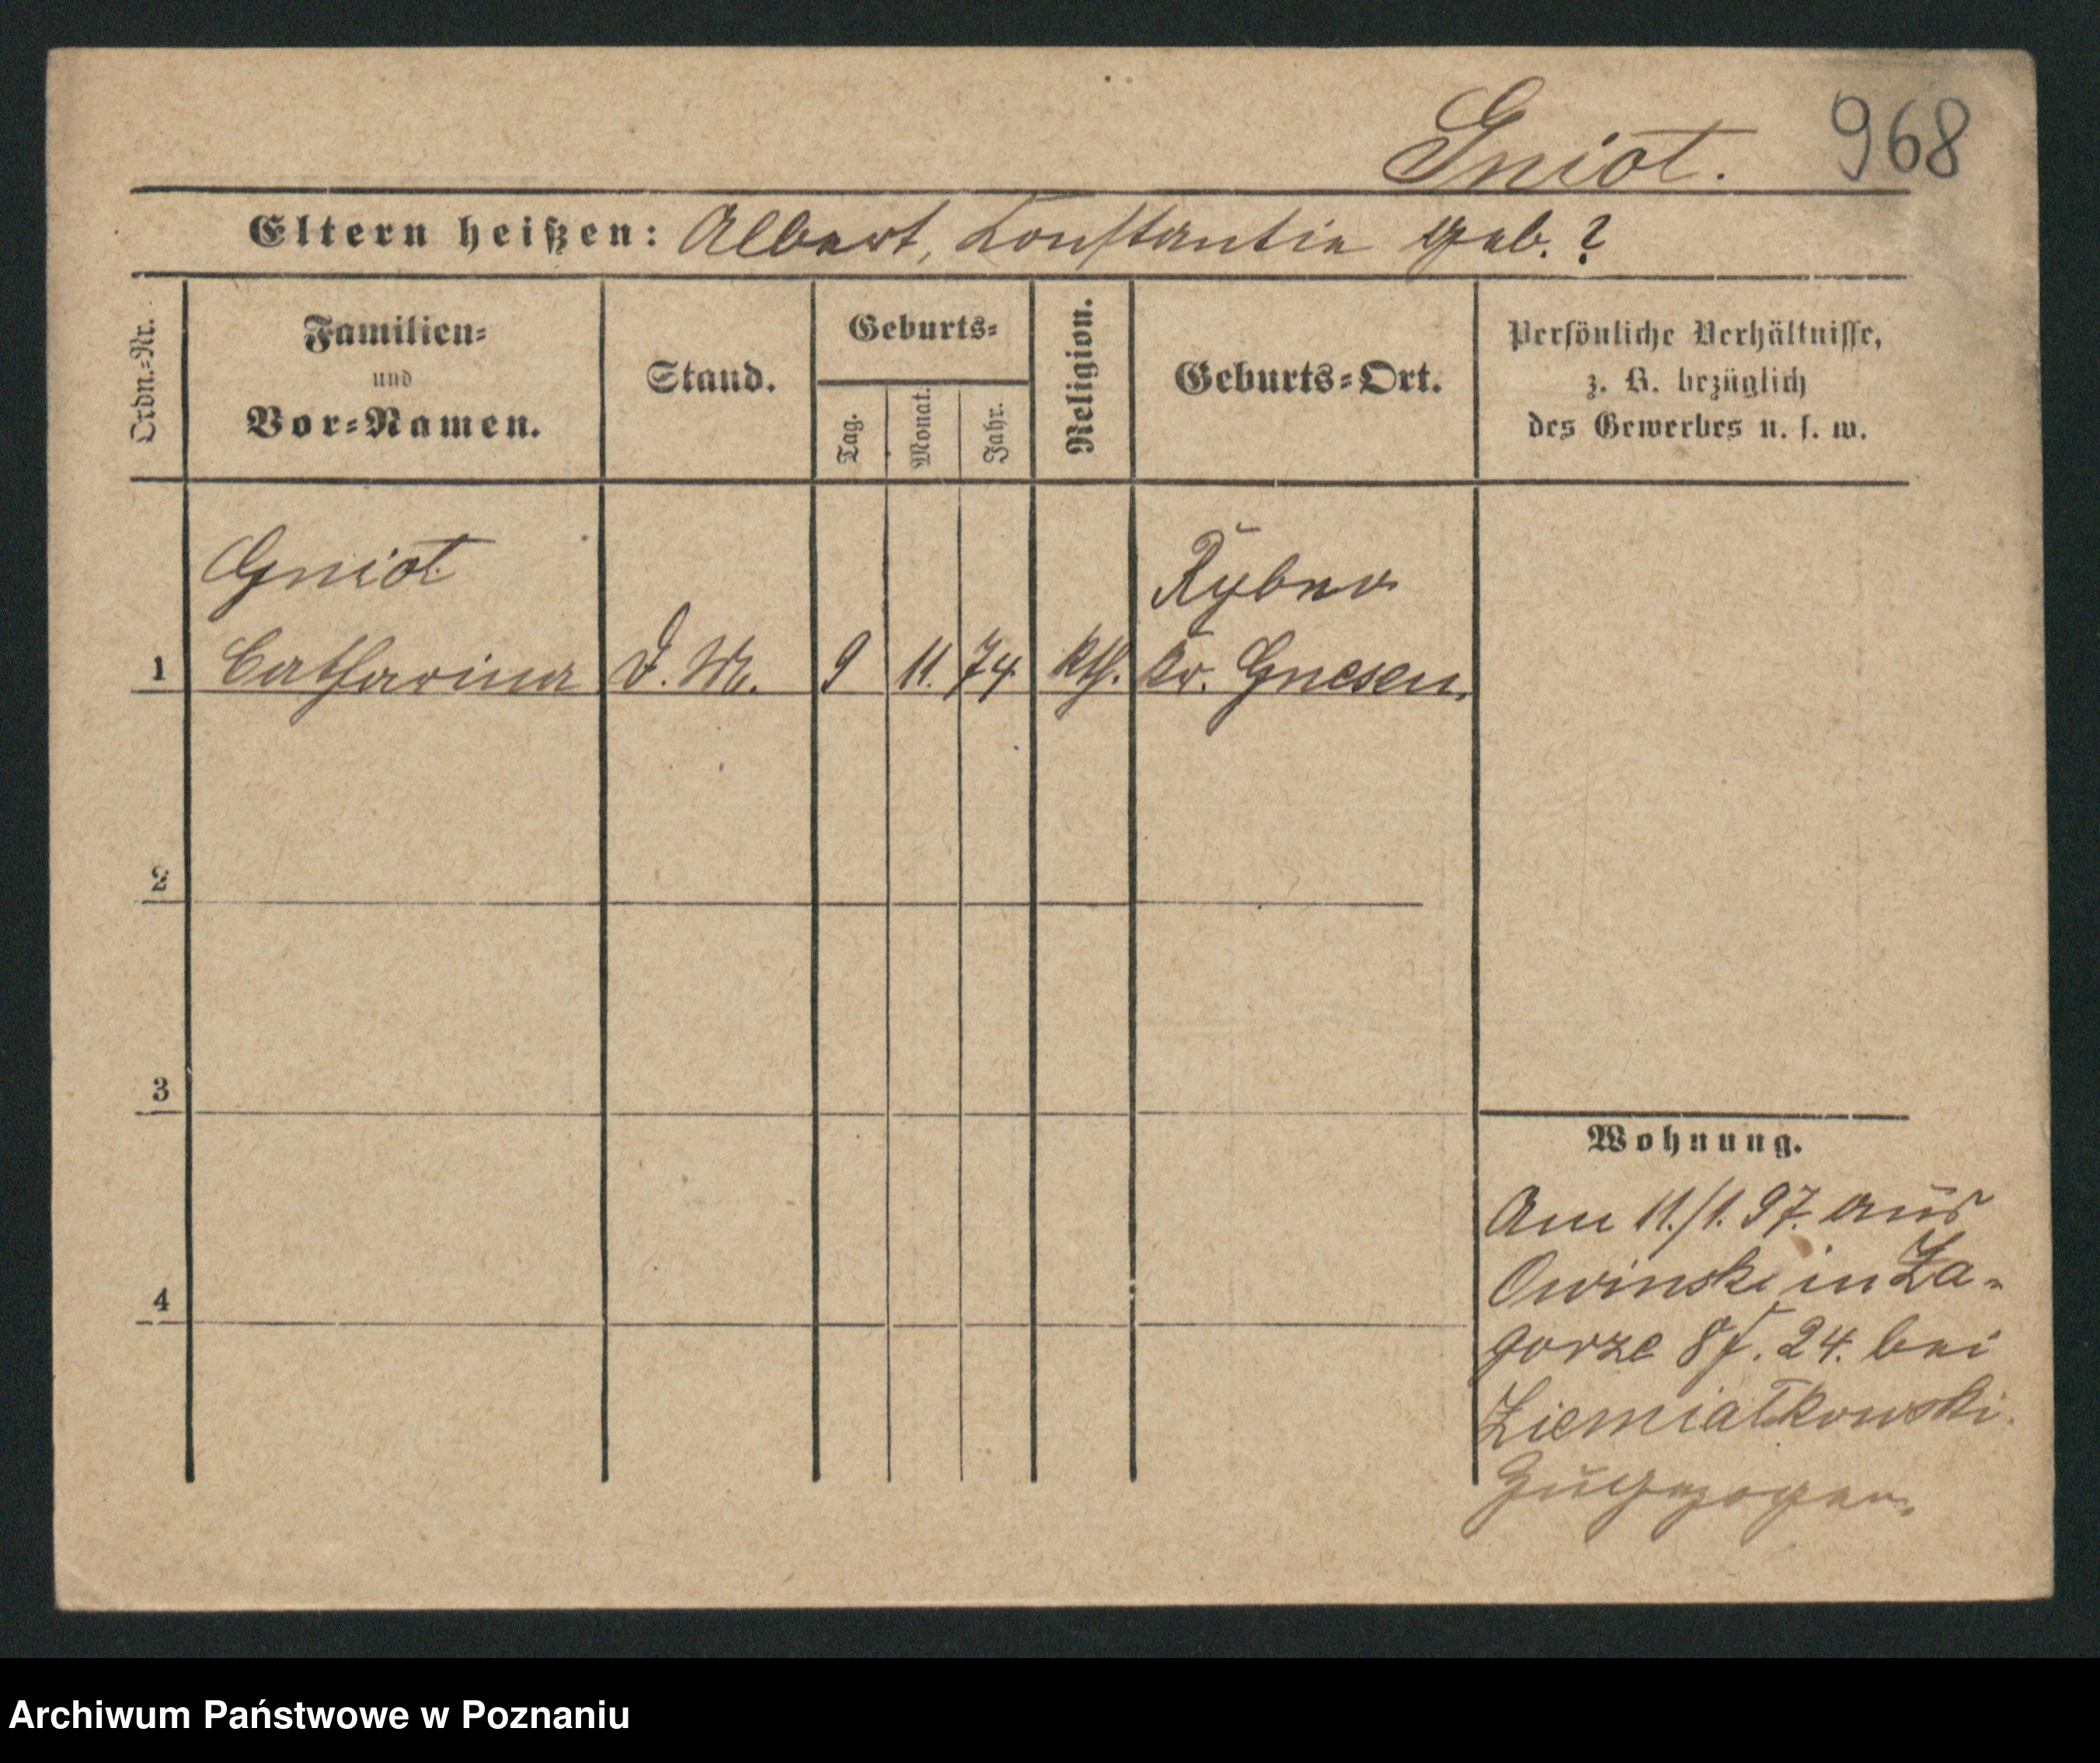 Gniot. 968
Eltern heißen: Albert, Konstantin geb. ?
Ordn.-Nr.
Familien-
und
Vor-Namen.
Stand.
Geburts-
Tag.
Monat.
Jahr.
Religion.
Geburts-Ort.
Persönliche Verhältnisse,
z. B. bezüglich
des Gewerbes u. s. w.
Gniot Rybno
1 Catharina D. M. 9 11. 74 kth. Kr. Gnesen.
2
3
4
Wohnung.
Am 11./1. 97. aus
Owinski in Za-
gorze 24. bei
Ziemiatkowski.
Zugezogen.
Archiwum Państwowe w Poznaniu